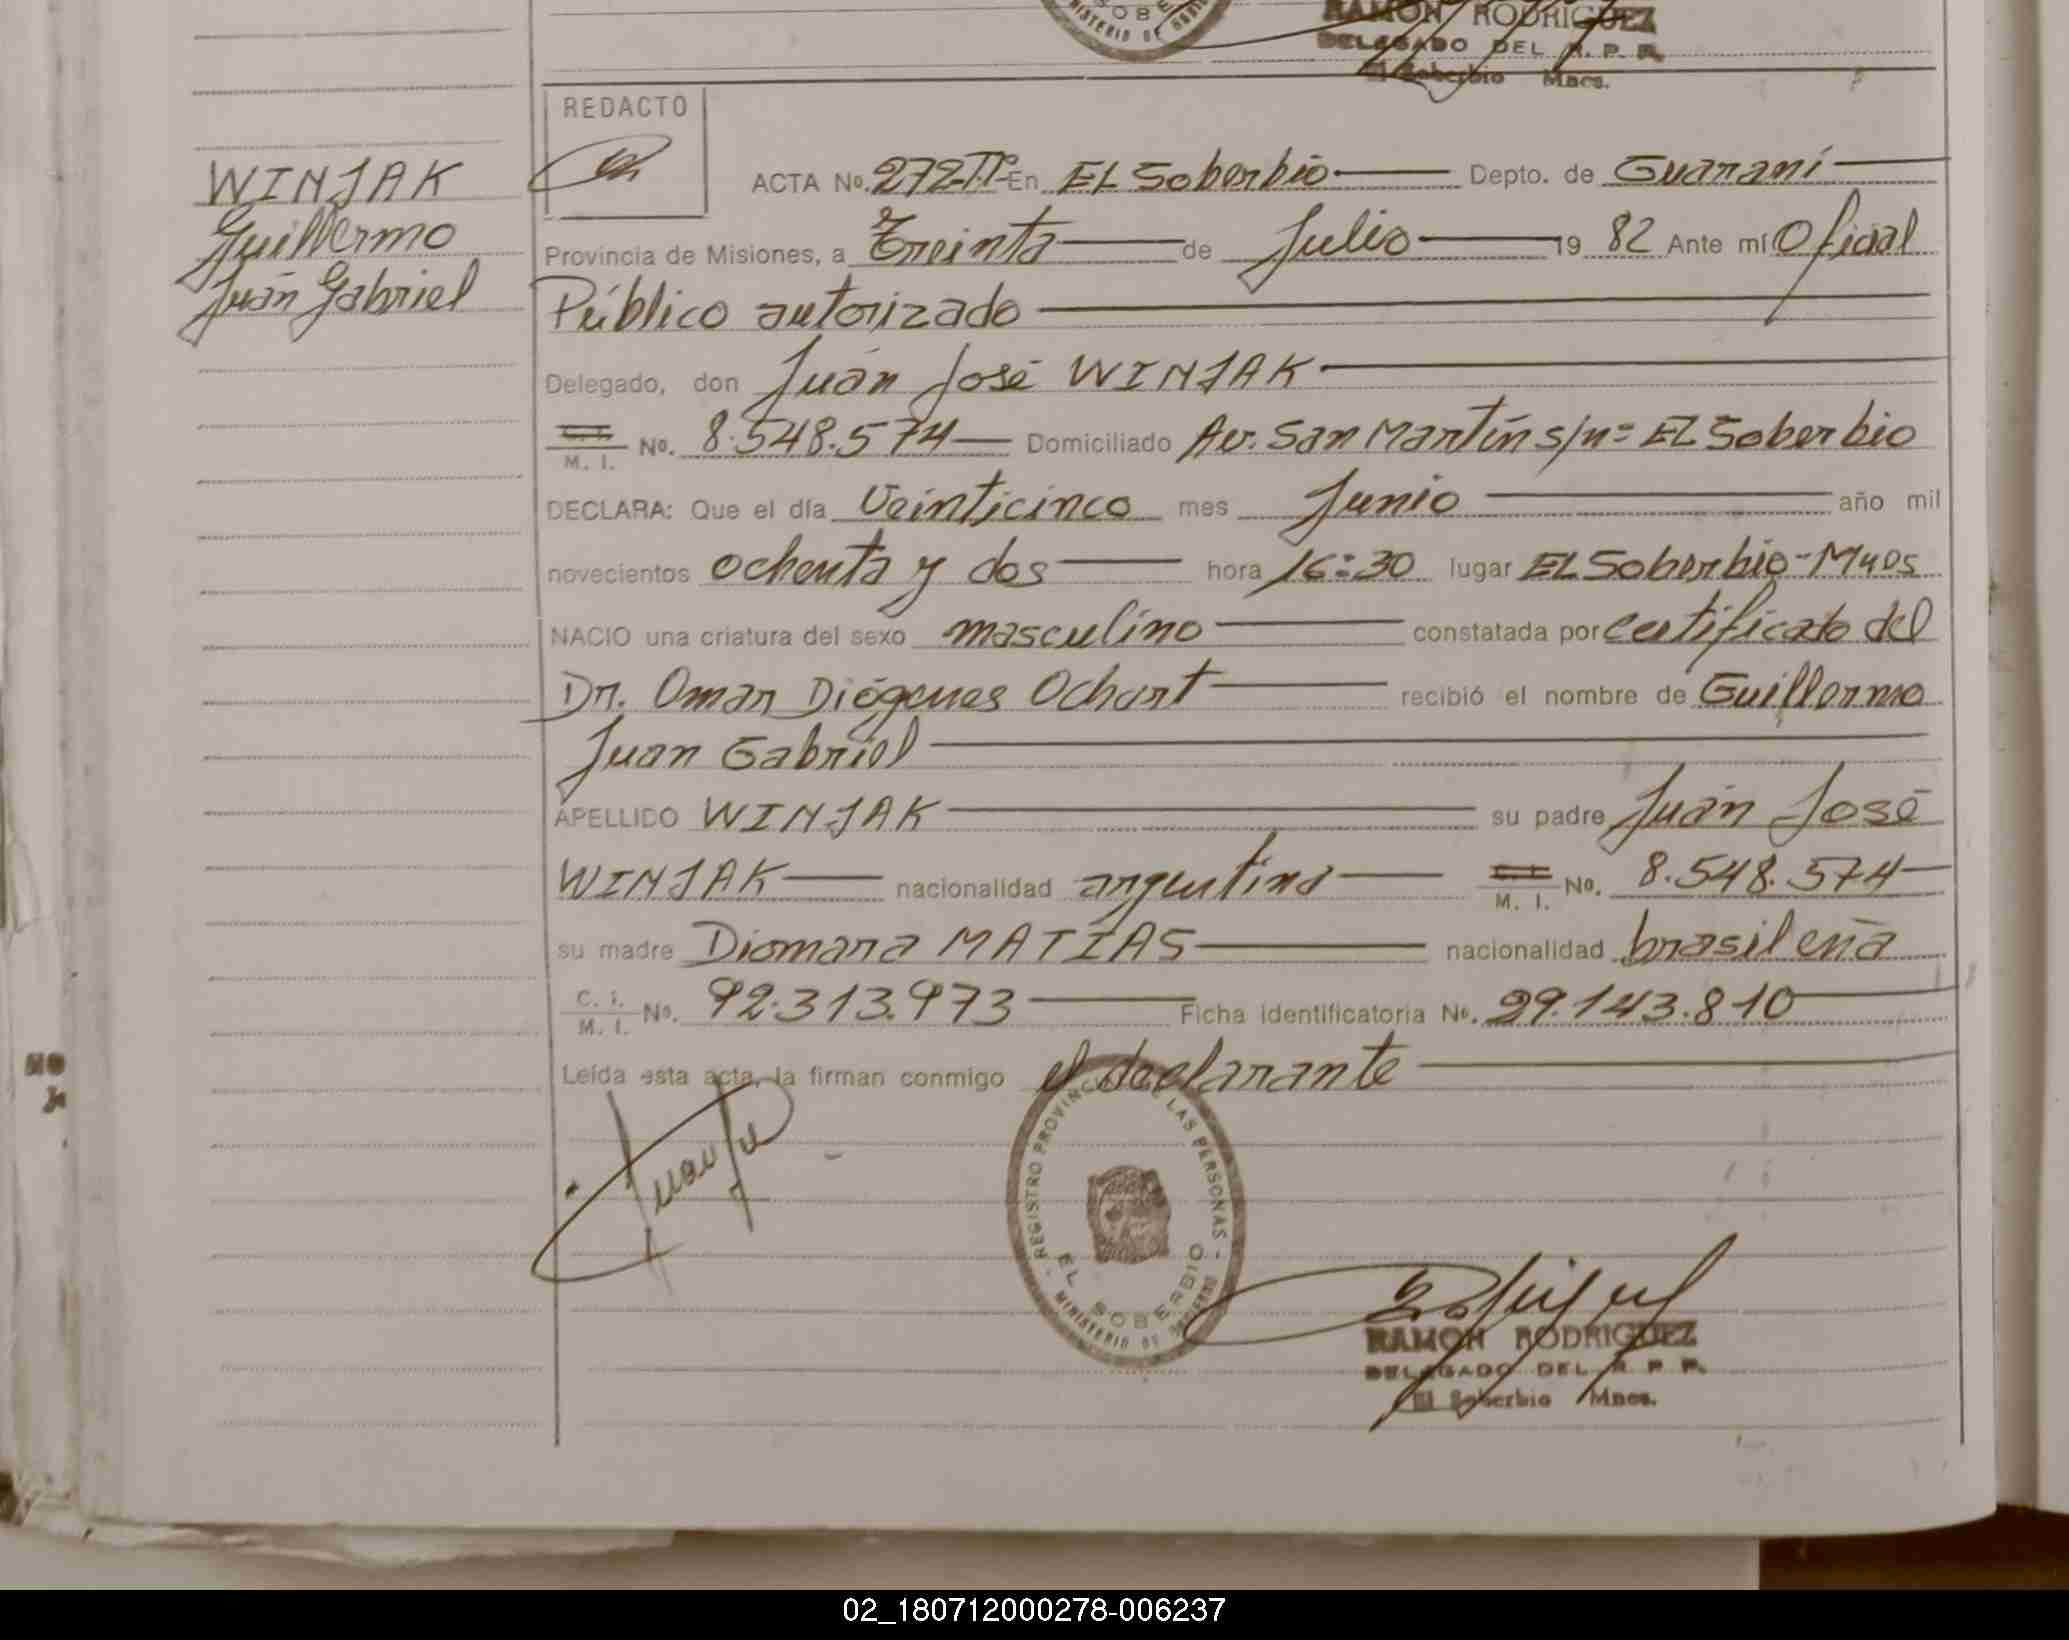 SOBE
MINISTERIO DE GOBIE
RAMON RODRIGUEZ
DELEGADO DEL R. P. P.
El Soberbio Mnes.
REDACTO
WINJAK
Guillermo
Juan Gabriel
ACTA No. 272-Tº- En EL Soberbio Depto. de Guaraní
Provincia de Misiones, a Treinta de Julio 19 82 Ante mí Oficial
Público autorizado
Delegado, don Juan José WINJAK
C. I. M. I. No. 8.548.574 Domiciliado Av. San Martín s/nº EL Soberbio
DECLARA: Que el día Veinticinco mes Junio año mil
novecientos ochenta y dos hora 16:30 lugar EL Soberbio-Mnes
NACIO una criatura del sexo masculino constatada por certificado del
Dr. Omar Diógenes Ochart recibió el nombre de Guillermo
Juan Gabriel
APELLIDO WINJAK su padre Juan José
WINJAK nacionalidad argentina C. I. M. I. No. 8.548.574
su madre Diomara MATIAS nacionalidad brasileña
C. I. M. I. No. 92.313.973 Ficha identificatoria No. 29.143.810
Leída esta acta, la firman conmigo el declarante
- REGISTRO PROVINCIAL DE LAS PERSONAS -
EL SOBERBIO
MINISTERIO DE GOBIERNO
RAMON RODRIGUEZ
DELEGADO DEL R. P. P.
El Soberbio Mnes.
02_180712000278-006237